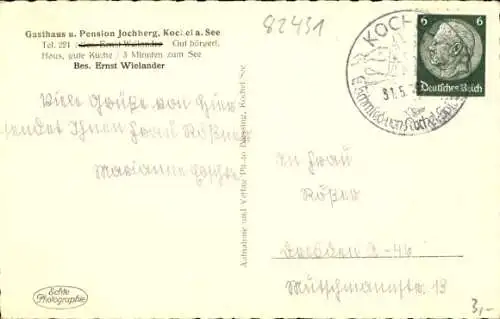 Gasthaus u. Pension Jochberg, Kochel a. See
Tel. 221 / Bes. Ernst Weilander Gut bürgerl.
Haus, gute Küche / 3 Minuten zum See
Bes. Ernst Wielander
82431
KOCHEL
31.5.
Schmied von Kochel
6 6
Deutsches Reich
Viele Grüße von hier
sendet Ihnen Frau Rößner
Marianne
Aufnahme und Verlag
Kochel See
An Frau
Rößner
Dresden A-46
Mutschmannstr. 13
Echte
Photographie
3,-